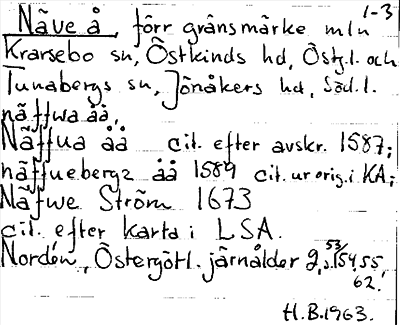 1-3
Näve å, förr gränsmärke mln
Krarsebo sn, Östkinds hd, Östg.l. och
Tunabergs sn, Jönåkers hd, Söd.l.
näffwa åå,
Näffua åå cit. efter avskr. 1587;
näffuebergz åå 1589 cit. ur orig. i KA;
Näfwe Ström 1673
cit. efter karta i LSA.
Nordén, Östergötl. järnålder 2, s. 53, 154, 55,
62.
H.B. 1963.